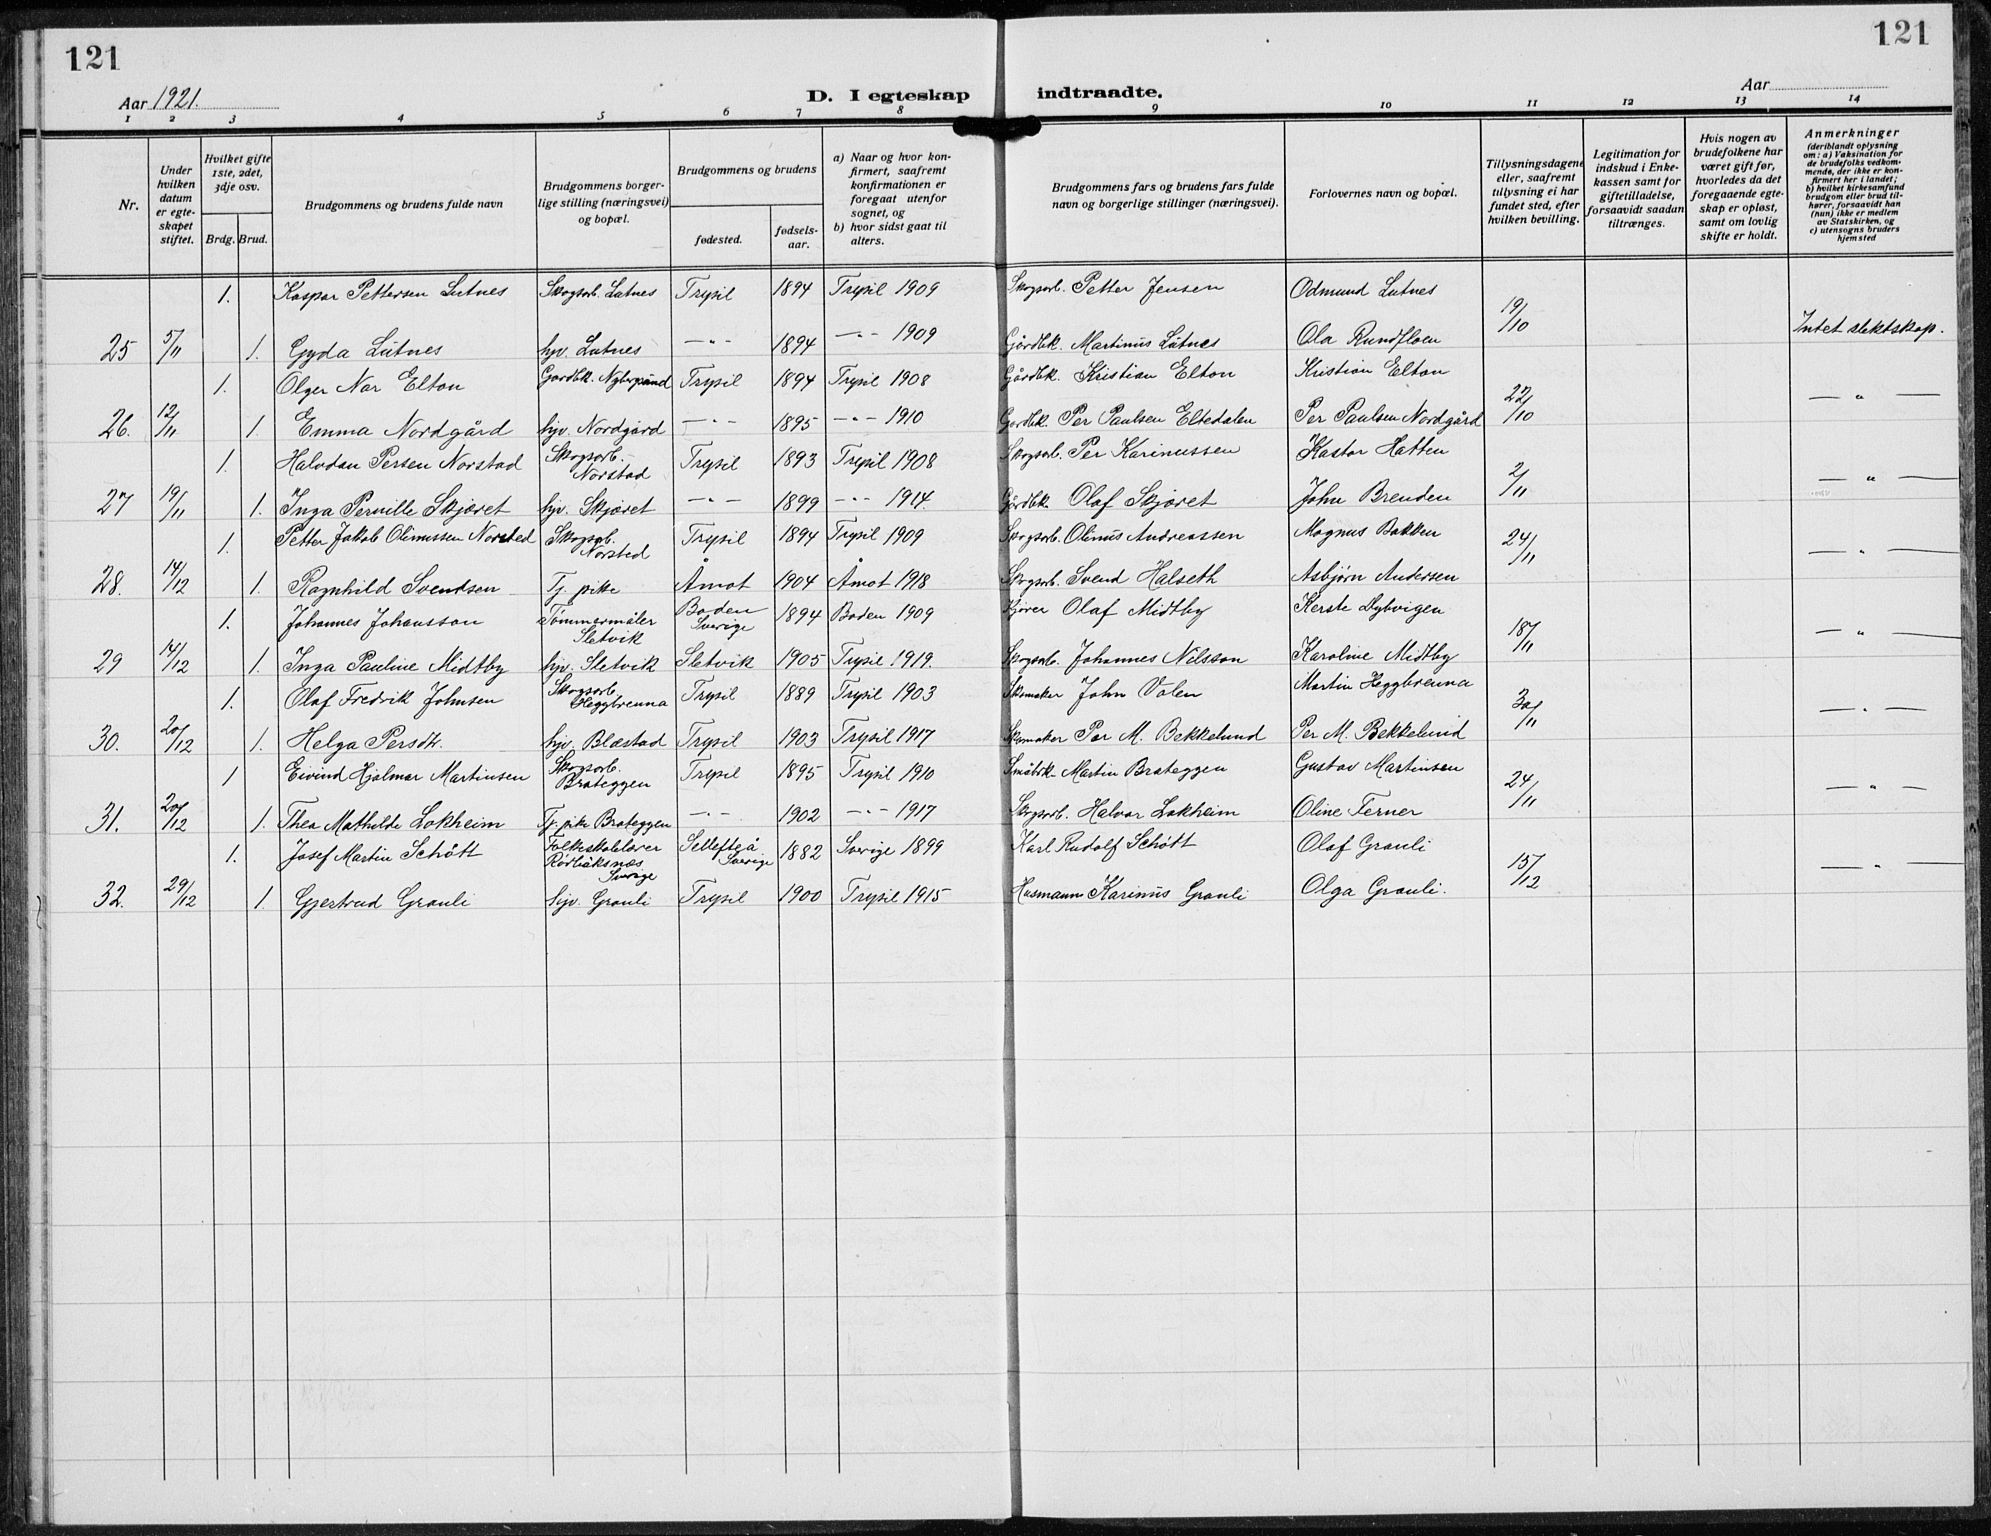 121
121
Aar 1921.
D. I egteskap indtraadte.
Aar
1 2 3 4 5 6 7 8 9 10 11 12 13 14
Nr.
Under hvilken datum er egteskapet stiftet.
Hvilket gifte 1ste, 2det, 3dje osv.
Brdg. Brud.
Brudgommens og brudens fulde navn
Brudgommens borgerlige stilling (næringsvei) og bopæl.
Brudgommens og brudens
fødested.
fødselsaar.
a) Naar og hvor konfirmert, saafremt konfirmationen er foregaat utenfor sognet, og
b) hvor sidst gaat til alters.
Brudgommens fars og brudens fars fulde navn og borgerlige stillinger (næringsvei).
Forlovernes navn og bopæl.
Tillysningsdagene eller, saafremt tillysning ei har fundet sted, efter hvilken bevilling.
Legitimation for indskud i Enkekassen samt for giftetilladelse, forsaavidt saadan tiltrænges.
Hvis nogen av brudefolkene har været gift før, hvorledes da det foregaaende egteskap er opløst, samt om lovlig skifte er holdt.
Anmerkninger
(deriblandt oplysning om: a) Vaksination for de brudefolks vedkommende, der ikke er konfirmert her i landet; b) hvilket kirkesamfund brudgom eller brud tilhører, forsaavidt han (hun) ikke er medlem av Statskirken, og c) utensogns bruders hjemsted
1. Kaspar Pettersen Lutnes Skogsarb. Lutnes Trysil 1894 Trysil 1909 Skogsarb. Petter Jensen Odmund Lutnes 19/10
25 5/11 1. Gyda Lutnes hjv. Lutnes —"— 1894 —"— 1909 Gårdbk. Martinus Lutnes Ola Rundfloen Intet slektskap.
1. Olger Nar Elton Gardbk. Trysil 1894 Trysil 1908 Gårdbk. Kristian Elton Kristian Elton 22/10
26. 12/11 1. Emma Nordgård hjv. Nordgård —"— 1895 —"— 1910 Gardbk. Per Paulsen Eltedalen Per Paulsen Nordgård —"—
1. Halvdan Persen Norstad Skogsarb. Norstad Trysil 1893 Trysil 1908 Skogsarb. Per Karinussen Kastor Hatten 2/11
27 19/11 1. Inga Pernille Skjæret hjv. Skjæret —"— 1899 —"— 1914 Gårdbk. Olaf Skjæret John Brenden —"—
1. Petter Jakob Olimussen Norsted Skogsarb. Norsted Trysil 1894 Trysil 1909 Skogsarb. Olimus Andreassen Magnus Bakken 24/11
28. 14/12 1. Ragnhild Svendsen Tj. pike Åmot 1904 Åmot 1918 Skogsarb. Svend Halseth Asbjørn Andersen —"—
1. Johannes Johansson Tømmermåler Sletvik Boden Sverige 1894 Boden 1909 Kjører Olaf Midtby Kerste Dybvigen 18/11
29 14/12 1. Inga Pauline Midtby hjv. Sletvik Sletvik 1905 Trysil 1919. Skogsarb. Johannes Nilsson Karoline Midtby —"—
1. Olaf Fredrik Johnsen Skogsarb. Heggbrenna Trysil 1889 Trysil 1903 Skomaker John Volen Martin Heggbrenna 30/11
30. 20/12 1. Helga Persdt. hjv. Blæstad Trysil 1903 Trysil 1917 Skomaker Per M. Bekkelund Per M. Bekkelund —"—
1 Eivind Hjalmar Martinsen Skogsarb. Brateggen Trysil 1895 Trysil 1910 Småbrk. Martin Brateggen Gustav Martinsen 24/11
31. 20/12 1. Thea Mathilde Lokheim Tj. pike Brateggen —"— 1902 —"— 1917 Skogsarb. Halvor Lokheim Oline Terner —"—
1. Josef Martin Schött Folkeskolelærer Rörbäksnäs Sverige Sellefteå Sverige 1882 Sverige 1899 Karl Rudolf Schött Olaf Grauli 15/12
32. 29/12 1. Gjertrud Grauli hjv. Grauli Trysil 1900 Trysil 1915 Husmann Karinus Grauli Olga Grauli. —"—